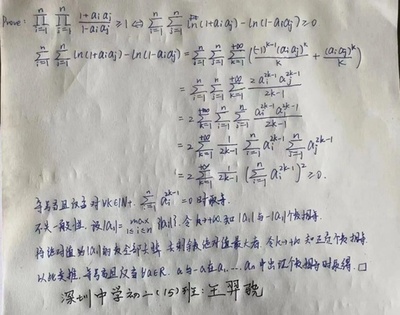 Prove: $\prod_{i=1}^{n} \prod_{j=1}^{n} \frac{1+a_i a_j}{1-a_i a_j} \geq 1 \Leftrightarrow \sum_{i=1}^{n} \sum_{j=1}^{n} \ln(1+a_i a_j) - \ln(1-a_i a_j) \geq 0.$
$\sum_{i=1}^{n} \sum_{j=1}^{n} \ln(1+a_i a_j) - \ln(1-a_i a_j) = \sum_{i=1}^{n} \sum_{j=1}^{n} \sum_{k=1}^{+\infty} \frac{(-1)^{k-1}(a_i a_j)^k}{k} + \frac{(a_i a_j)^k}{k}$
$= \sum_{i=1}^{n} \sum_{j=1}^{n} \sum_{k=1}^{+\infty} \frac{2 a_i^{2k-1} a_j^{2k-1}}{2k-1}$
$= 2 \sum_{k=1}^{+\infty} \sum_{i=1}^{n} \sum_{j=1}^{n} \frac{a_i^{2k-1} a_j^{2k-1}}{2k-1}$
$= 2 \sum_{k=1}^{+\infty} \frac{1}{2k-1} \sum_{i=1}^{n} a_i^{2k-1} \sum_{j=1}^{n} a_j^{2k-1}$
$= 2 \sum_{k=1}^{+\infty} \frac{1}{2k-1} \left(\sum_{i=1}^{n} a_i^{2k-1}\right)^2 \geq 0.$
等号当且仅当对 ∀k∈N+, $\sum_{i=1}^{n} a_i^{2k-1} = 0$ 时取等.
不失一般性, 设 $|a_1| = \max_{1 \leq i \leq n} |a_i|$. 令 k→+∞, 知 |a_1| 与 -|a_1| 个数相等.
将绝对值为 |a_1| 的数全部去掉, 绝对值最大者, 令 k→+∞ 知正负个数相等.
以此类推, 等号当且仅当 ∀a∈R, a 与 -a 在 a_1, ..., a_n 中出现个数相等时取得. □
深圳中学初二(15)班: 王羿